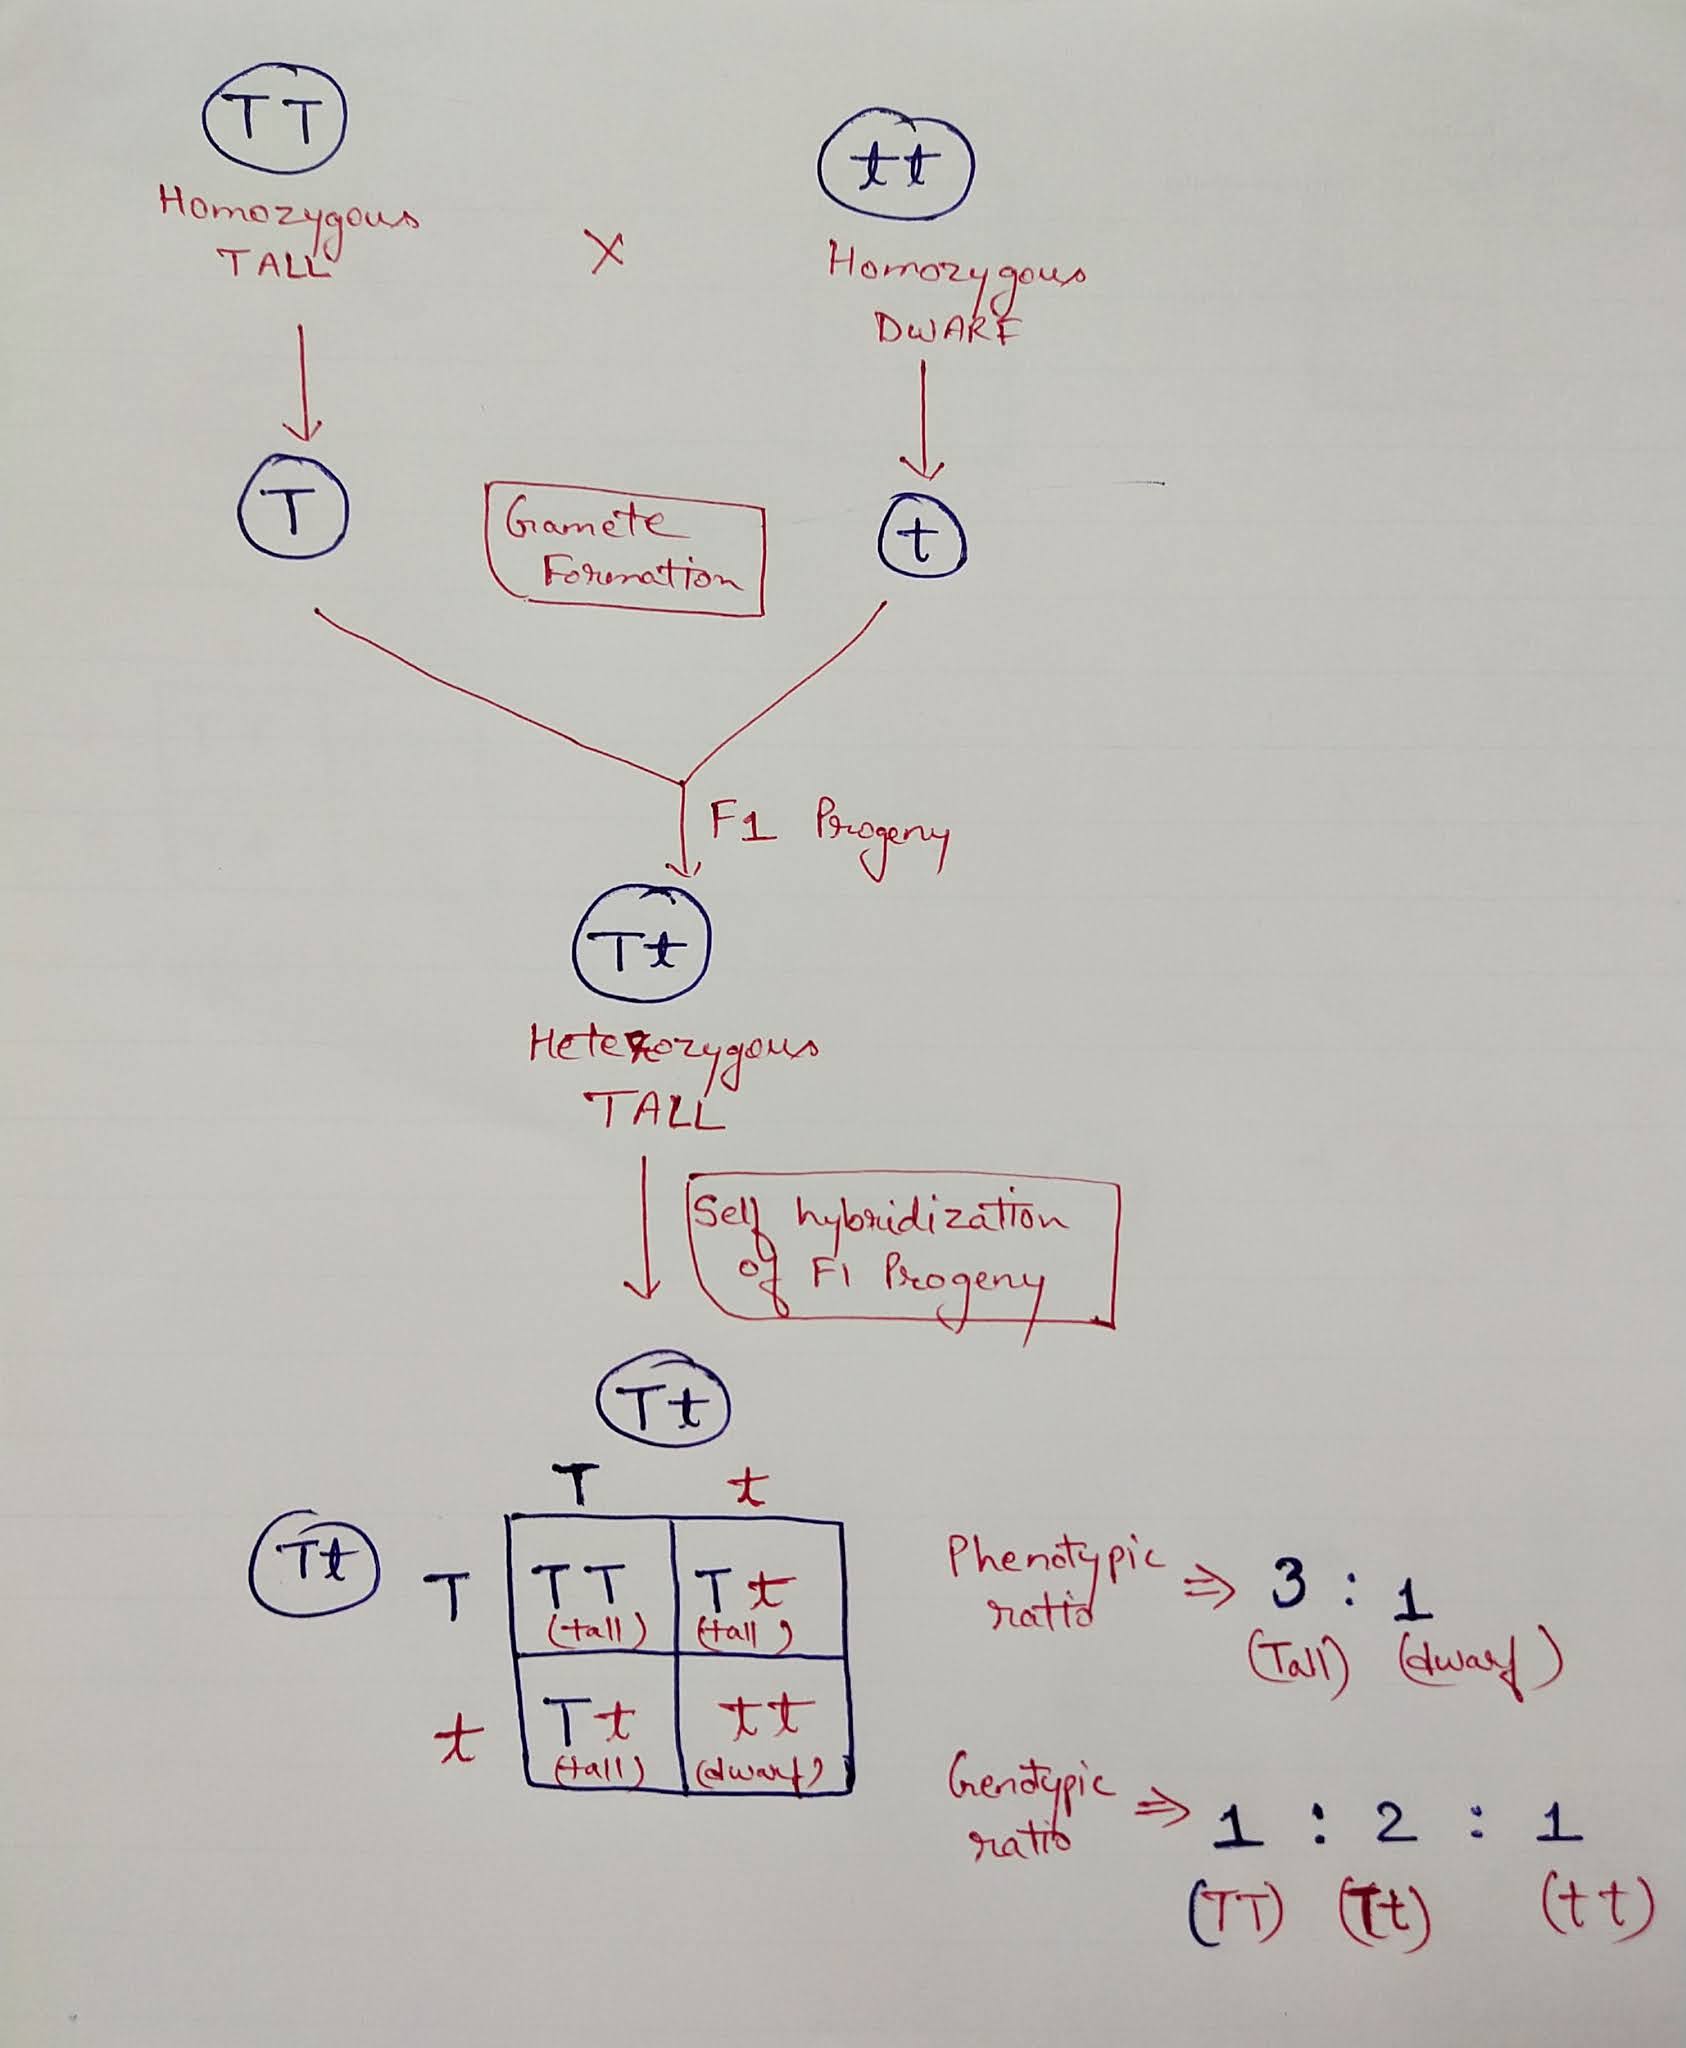 TT
tt
Homozygous
TALL
X
Homozygous
DWARF
T
Gamete
Formation
t
F1 Progeny
Tt
Heterozygous
TALL
Self hybridization
of F1 Progeny
Tt
T t
Tt
T
TT
(tall)
Tt
(tall)
t
Tt
(tall)
tt
(dwarf)
Phenotypic
ratio
⇒ 3 : 1
(Tall) (dwarf)
Genotypic
ratio
⇒ 1 : 2 : 1
(TT) (Tt) (tt)